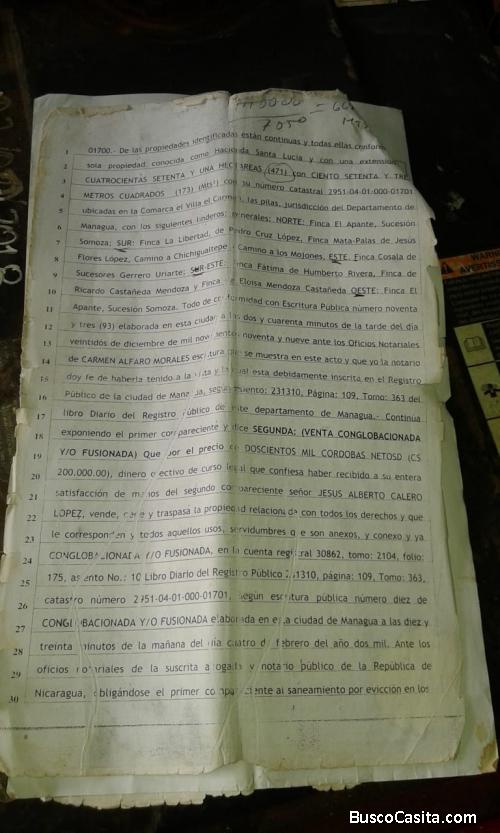 7050
MTS
1 01700.- De las propiedades identificadas están continuas y todas ellas
2 sola propiedad conocida como Hacienda Santa Lucia y con una extensión
3 CUATROCIENTAS SETENTA Y UNA HECTAREAS (471) con CIENTO SETENTA Y TRE
4 METROS CUADRADOS (173) (Mts²) con su número catastral 2951-04-01-000-01701
5 ubicadas en la Comarca el Villa el Carmen, las pilas, jurisdicción del Departamento de
6 Managua, con los siguientes linderos; generales: NORTE: Finca El Apante, Sucesión
7 Somoza; SUR: Finca La Libertad, de Pedro Cruz López, Finca Mata-Palas de Jesús
8 Flores López, Camino a Chichigualtepe, Camino a los Mojones, ESTE. Finca Cosala de
9 Sucesores Gerrero Uriarte; SUR-ESTE: Finca Fátima de Humberto Rivera, Finca de
10 Ricardo Castañeda Mendoza y Finca Eloisa Mendoza Castañeda OESTE: Finca El
11 Apante, Sucesión Somoza. Todo de conformidad con Escritura Pública número noventa
12 y tres (93) elaborada en esta ciudad a las dos y cuarenta minutos de la tarde del día
13 veintidos de diciembre de mil novecientos noventa y nueve ante los Oficios Notariales
14 de CARMEN ALFARO MORALES escritura que se muestra en este acto y que yo la notario
15 doy fe de haberla tenido a la vista y la cual esta debidamente inscrita en el Registro
16 Público de la ciudad de Managua, según asiento: 231310, Página: 109, Tomo: 363 del
17 libro Diario del Registro Público de este departamento de Managua.- Continúa
18 exponiendo el primer compareciente y dice SEGUNDA: (VENTA CONGLOBACIONADA
19 Y/O FUSIONADA) Que por el precio de DOSCIENTOS MIL CORDOBAS NETOSD (C$
20 200.000.00), dinero efectivo de curso legal que confiesa haber recibido a su entera
21 satisfacción de manos del segundo compareciente señor JESUS ALBERTO CALERO
22 LÓPEZ, vende, cede y traspasa la propiedad relacionada con todos los derechos y que
23 le corresponden y todos aquellos usos, servidumbres que son anexos, y conexo y ya
24 CONGLOBACIONADA Y/O FUSIONADA, en la cuenta registral 30862, tomo; 2104, folio:
25 175, asiento No.: 10 Libro Diario del Registro Público 231310, página: 109, Tomo: 363,
26 catastro número 2951-04-01-000-01701, según escritura pública número diez de
27 CONGLOBACIONADA Y/O FUSIONADA elaborada en esta ciudad de Managua a las diez y
28 treinta minutos de la mañana del día cuatro de febrero del año dos mil. Ante los
29 oficios notariales de la suscrita abogada y notario público de la República de
30 Nicaragua, obligándose el primer compareciente al saneamiento por evicción en los
WARNING
BuscoCasita.com